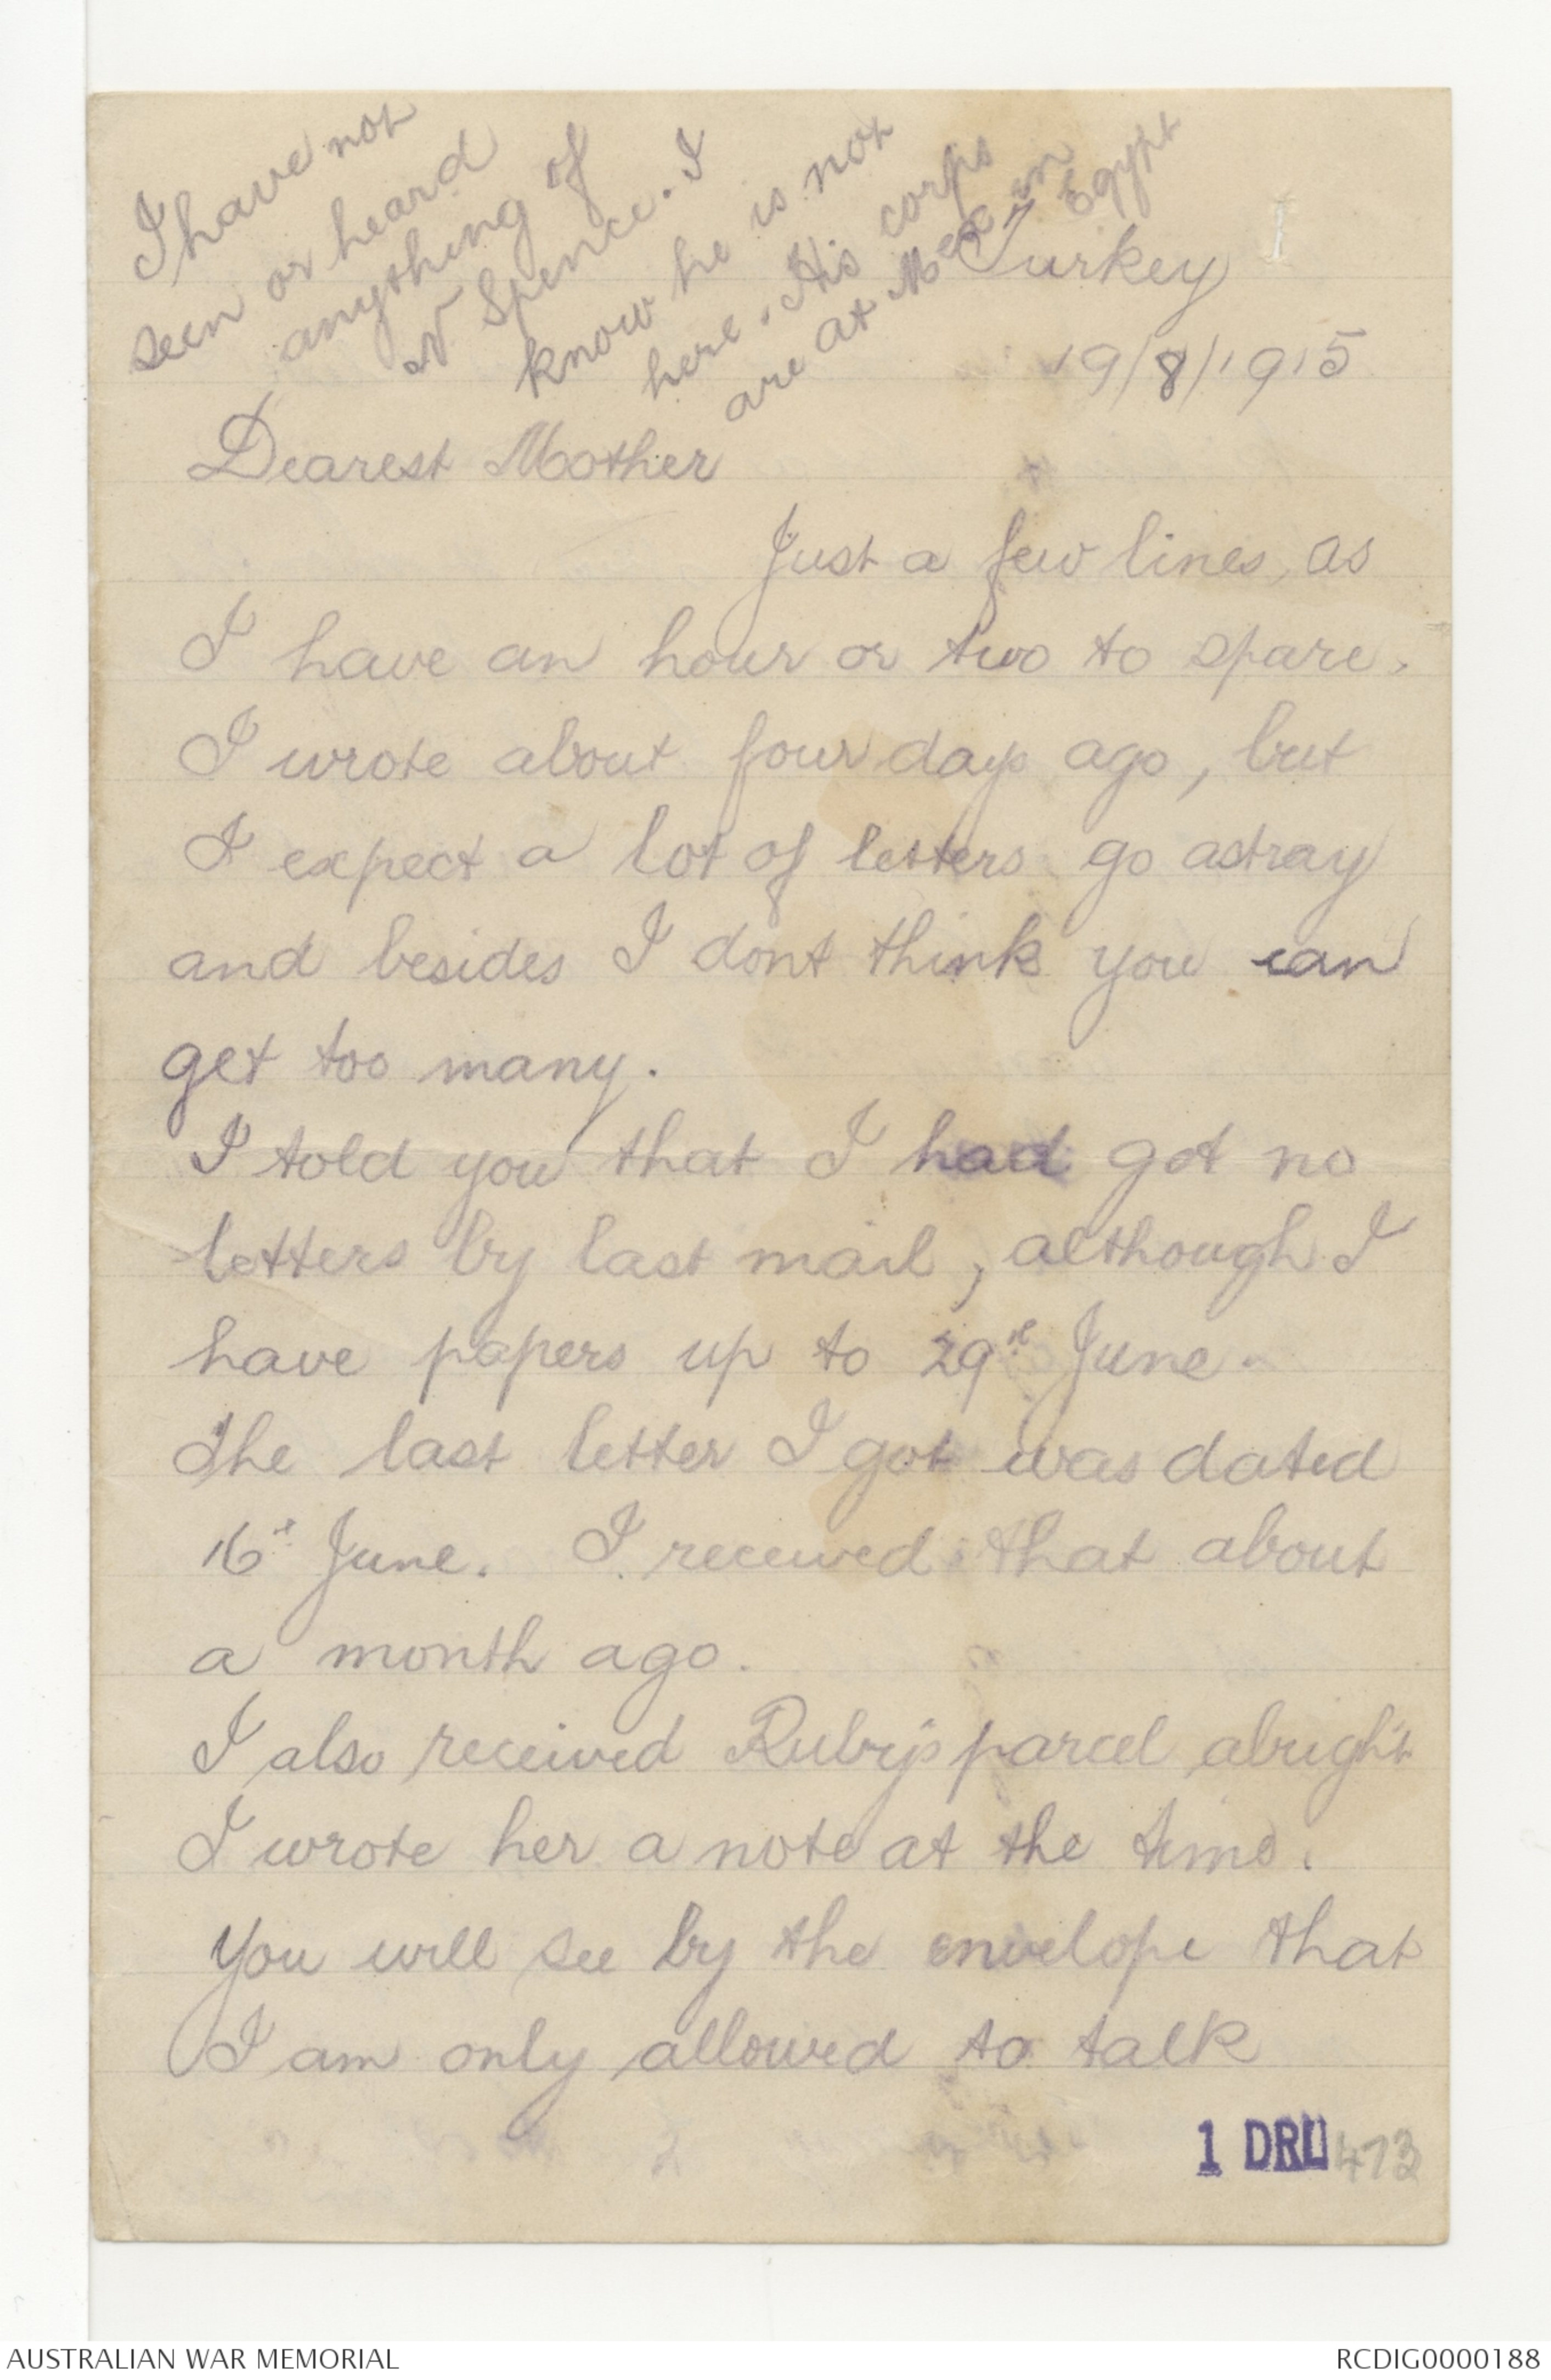 I have not
seen or heard
anything of
N Spence. I
know he is not
here. His corps
are at Mex in Egypt
Turkey
19/8/1915
Dearest Mother
Just a few lines, as
I have an hour or two to spare.
I wrote about four days ago, but
I expect a lot of letters go astray
and besides I dont think you can
get too many.
I told you that I had got no
letters by last mail, although I
have papers up to 29th June.
The last letter I got was dated
16th June. I received that about
a month ago.
I also received Ruby's parcel alright
I wrote her a note at the time.
You will see by the envelope that
I am only allowed to talk
1 DRL 473
AUSTRALIAN WAR MEMORIAL
RCDIG0000188